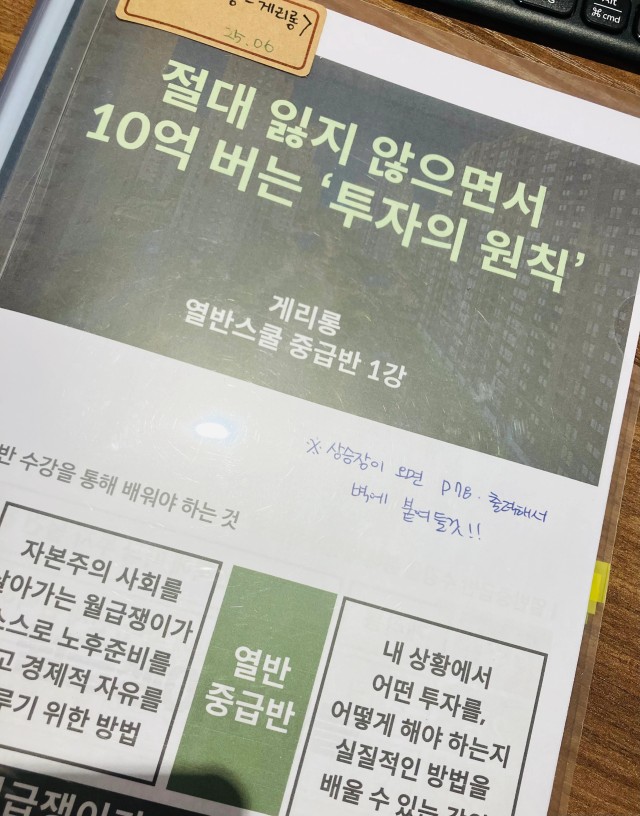 게리롱>
25.06
절대 잃지 않으면서
10억 버는 ‘투자의 원칙’
게리롱
열반스쿨 중급반 1강
※ 상승장이 오면 P78. 출력해서
벽에 붙여둘것!!
반 수강을 통해 배워야 하는 것
자본주의 사회를
살아가는 월급쟁이가
스스로 노후준비를
고 경제적 자유를
루기 위한 방법
열반
중급반
내 상황에서
어떤 투자를,
어떻게 해야 하는지
실질적인 방법을
배울 수 있는
alt
⌘ cmd